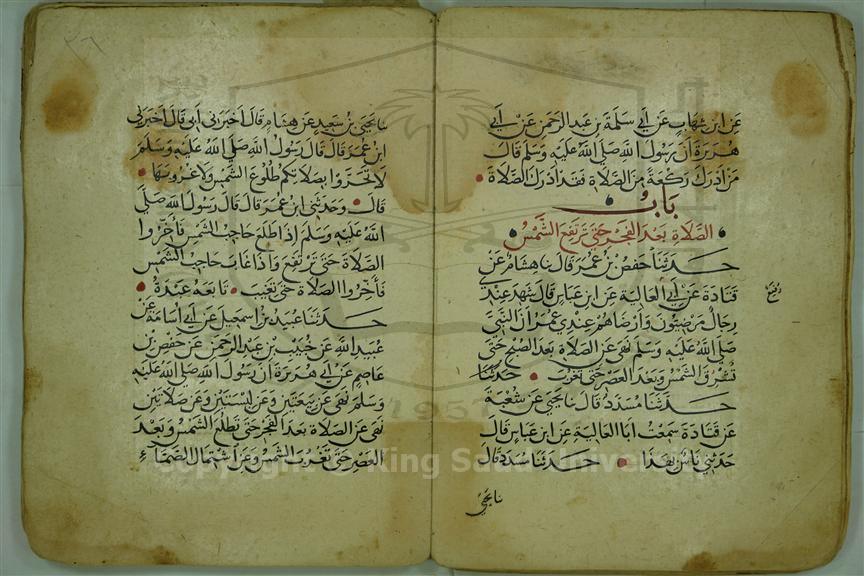 عن ابن شهاب عن أبي سلمة بن عبد الرحمن عن أبي
هريرة أن رسول الله صلى الله عليه وسلم قال
من أدرك ركعة من الصلاة فقد أدرك الصلاة
باب
الصلاة بعد الفجر حتى ترتفع الشمس
حدثنا حفص بن عمر قال نا هشام عن
قتادة عن أبي العالية عن ابن عباس قال شهد عندي
رجال مرضيون وأرضاهم عندي عمر أن النبي
صلى الله عليه وسلم نهى عن الصلاة بعد الصبح حتى
تشرق الشمس وبعد العصر حتى تغرب حدثنا
حدثنا مسدد قال نا يحيى عن شعبة
عن قتادة سمعت أبا العالية عن ابن عباس قال
حدثني ناس بهذا حدثنا مسدد قال
نا يحيى
٣٦
نا يحيى بن سعيد عن هشام قال أخبرني أبي قال أخبرني
ابن عمر قال قال رسول الله صلى الله عليه وسلم
لا تحروا بصلاتكم طلوع الشمس ولا غروبها
قال وحدثني ابن عمر قال قال رسول الله صلى
الله عليه وسلم إذا طلع حاجب الشمس فأخروا
الصلاة حتى ترتفع وإذا غاب حاجب الشمس
فأخروا الصلاة حتى تغيب تابعه عبدة
حدثنا عبيد بن إسمعيل عن أبي أسامة عن
عبيد الله عن خبيب بن عبد الرحمن عن حفص بن
عاصم عن أبي هريرة أن رسول الله صلى الله عليه
وسلم نهى عن بيعتين وعن لبستين وعن صلاتين
نهى عن الصلاة بعد الفجر حتى تطلع الشمس وبعد
العصر حتى تغرب الشمس وعن اشتمال الصماء
Copyright © King Saud University
1957